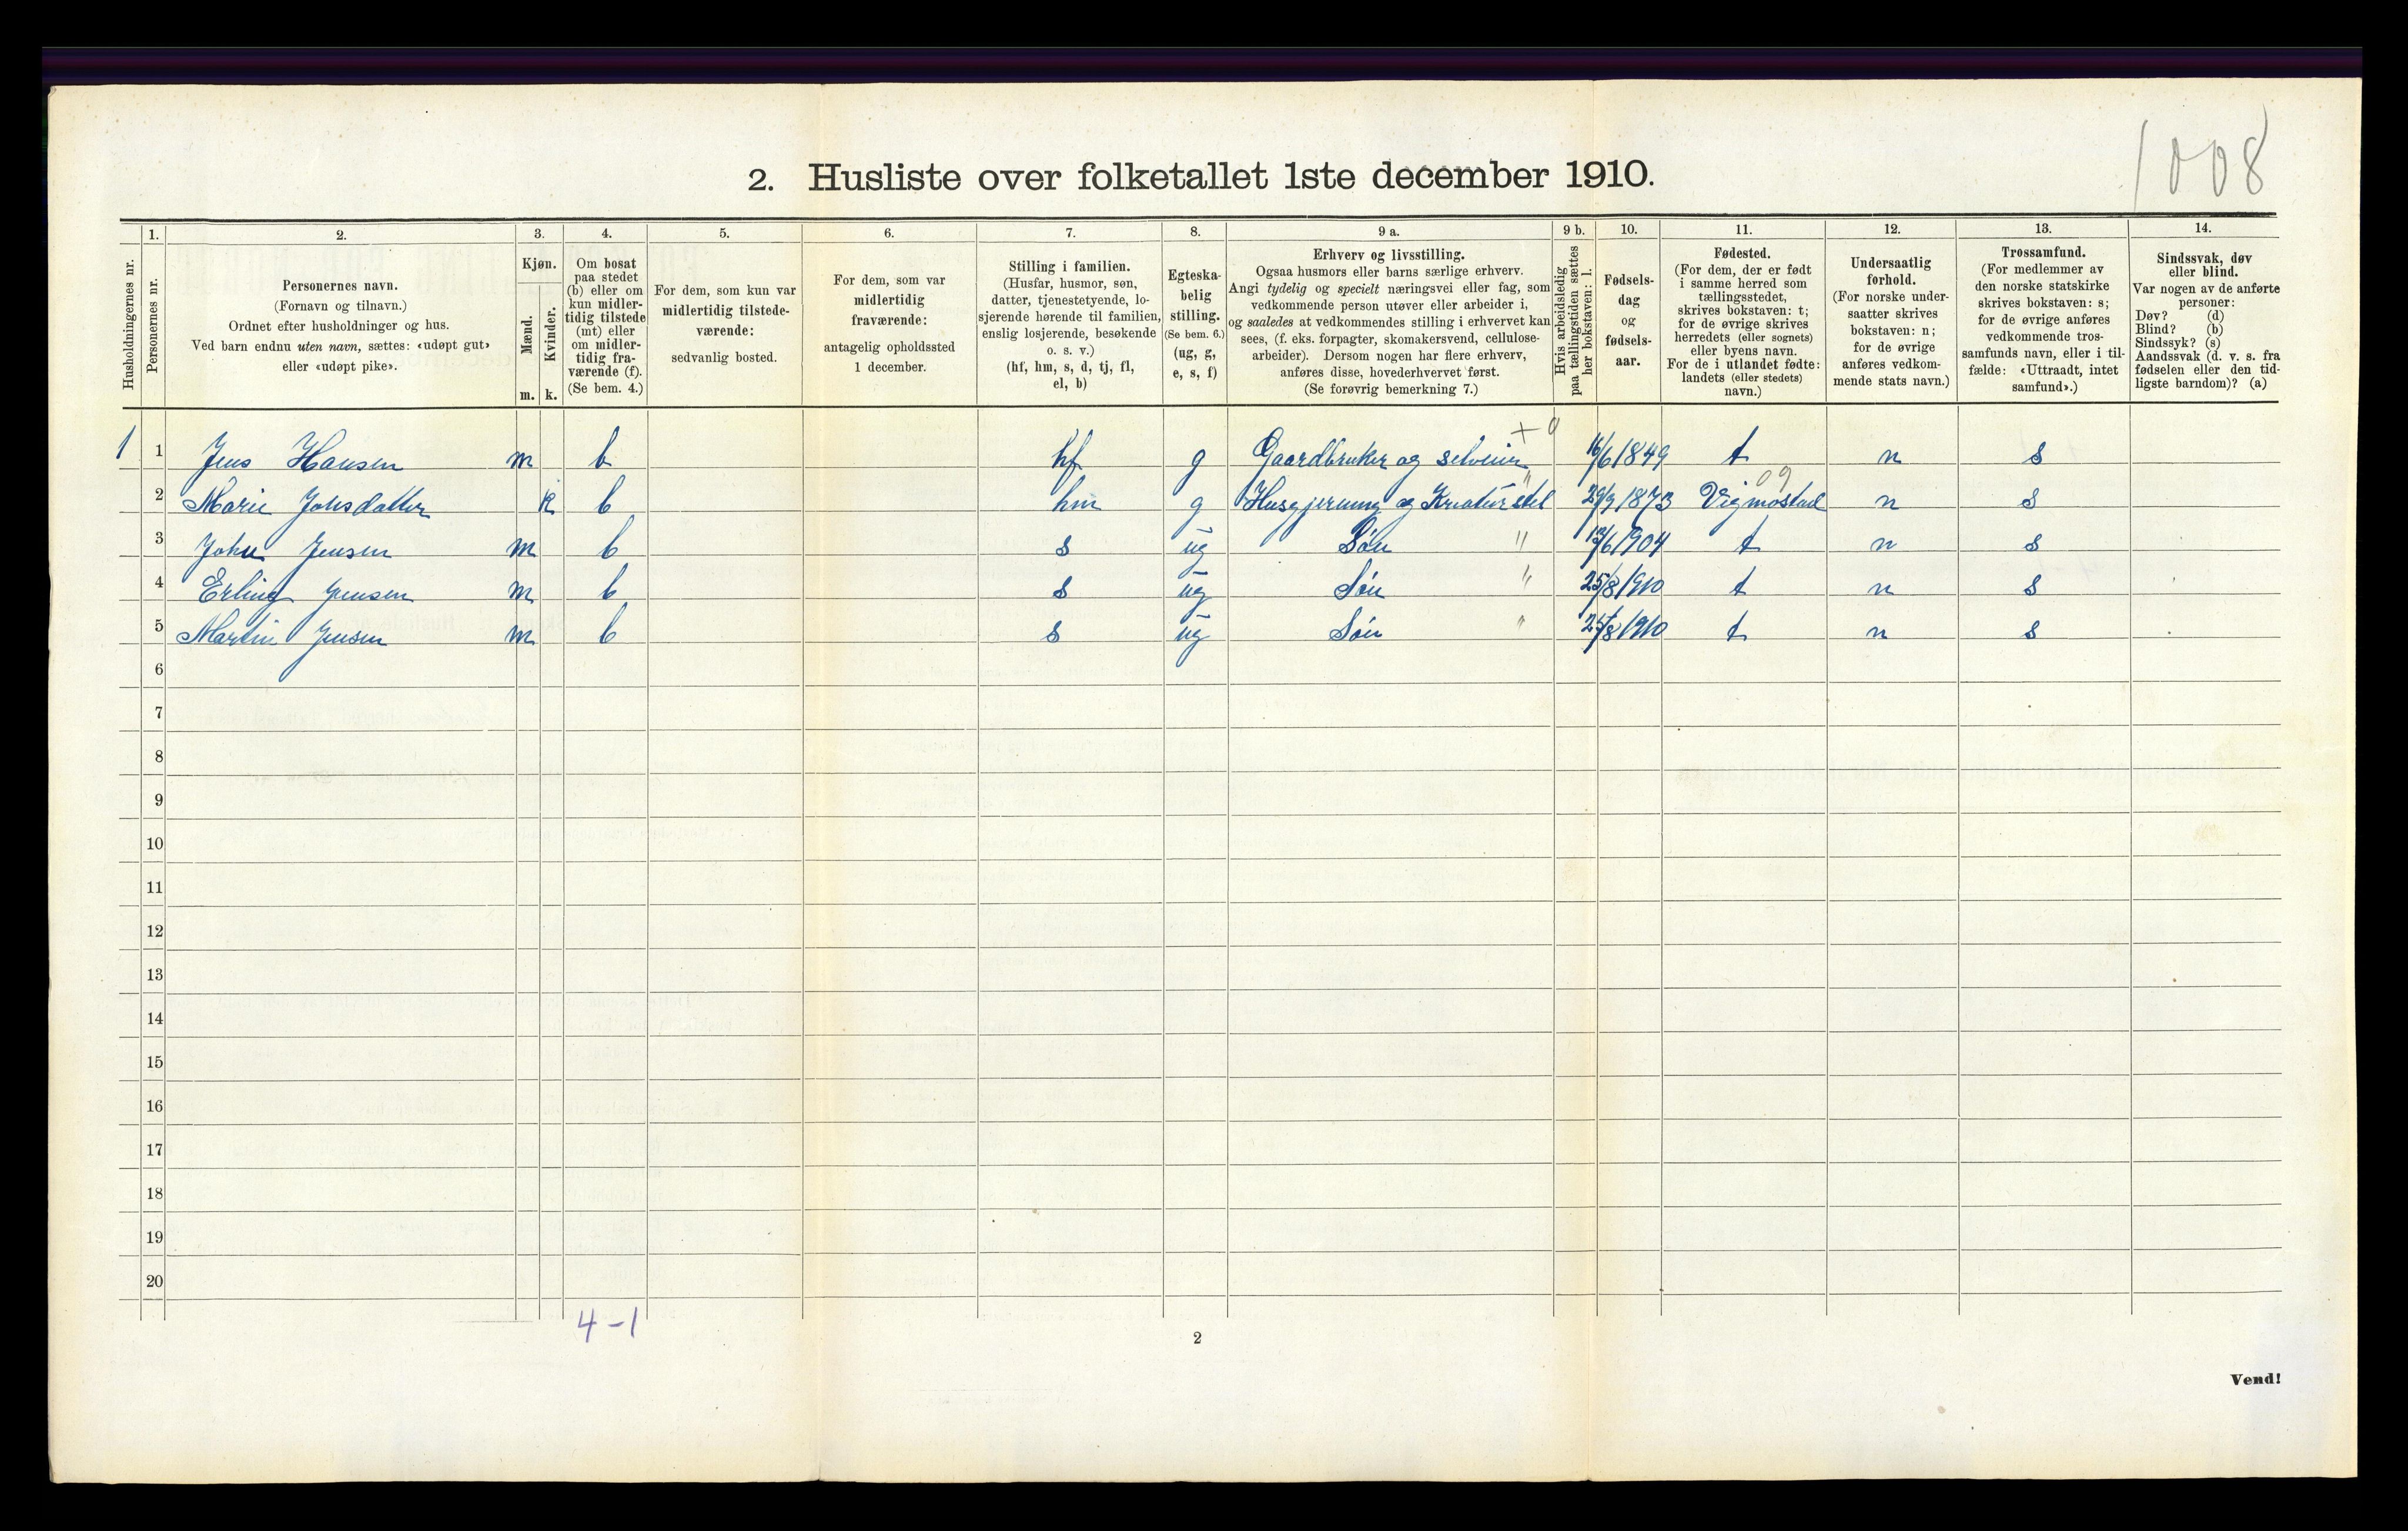 1008
2. Husliste over folketallet 1ste december 1910.
Husholdningernes nr.
1.
Personernes nr.
2.
Personernes navn.
(Fornavn og tilnavn.)
Ordnet efter husholdninger og hus.
Ved barn endnu uten navn, sættes: «udøpt gut»
eller «udøpt pike».
3.
Kjøn.
Mænd.
Kvinder.
m. k.
4.
Om bosat
paa stedet
(b) eller om
kun midler-
tidig tilstede
(mt) eller
om midler-
tidig fra-
værende (f).
(Se bem. 4.)
5.
For dem, som kun var
midlertidig tilstede-
værende:
sedvanlig bosted.
6.
For dem, som var
midlertidig
fraværende:
antagelig opholdssted
1 december.
7.
Stilling i familien.
(Husfar, husmor, søn,
datter, tjenestetyende, lo-
sjerende hørende til familien,
enslig losjerende, besøkende
o. s. v.)
(hf, hm, s, d, tj, fl,
el, b)
8.
Egteska-
belig
stilling.
(Se bem. 6.)
(ug, g,
e, s, f)
9 a.
Erhverv og livsstilling.
Ogsaa husmors eller barns særlige erhverv.
Angi tydelig og specielt næringsvei eller fag, som
vedkommende person utøver eller arbeider i,
og saaledes at vedkommendes stilling i erhvervet kan
sees, (f. eks. forpagter, skomakersvend, cellulose-
arbeider). Dersom nogen har flere erhverv,
anføres disse, hovederhvervet først.
(Se forøvrig bemerkning 7.)
9 b.
Hvis arbeidsledig
paa tællingstiden sættes
her bokstaven: l.
10.
Fødsels-
dag
og
fødsels-
aar.
11.
Fødested.
(For dem, der er født
i samme herred som
tællingsstedet,
skrives bokstaven: t;
for de øvrige skrives
herredets (eller sognets)
eller byens navn.
For de i utlandet fødte:
landets (eller stedets)
navn.)
12.
Undersaatlig
forhold.
(For norske under-
saatter skrives
bokstaven: n;
for de øvrige
anføres vedkom-
mende stats navn.)
13.
Trossamfund.
(For medlemmer av
den norske statskirke
skrives bokstaven: s;
for de øvrige anføres
vedkommende tros-
samfunds navn, eller i til-
fælde: «Uttraadt, intet
samfund».)
14.
Sindssvak, døv
eller blind.
Var nogen av de anførte
personer:
Døv? (d)
Blind? (b)
Sindssyk? (s)
Aandssvak (d. v. s. fra
fødselen eller den tid-
ligste barndom)? (a)
+ 0
1 1 Jens Hansen m b hf g Gaardbruker og selveier 16/6 1849 t n s
09
2 Marie Johsdatter k b hm g Husgjerning og Kreaturstel " 29/9 1873 Vigmostad n s
3 John Jensen m b s ug Søn " 6 1904 t n s
4 Erling Jensen m b s ug Søn " 25/8 1910 t n s
5 Martin Jensen m b s ug Søn " 25/8 1910 t n s
6
7
8
9
10
11
12
13
14
15
16
17
18
19
20
4 - 1
2
Vend!